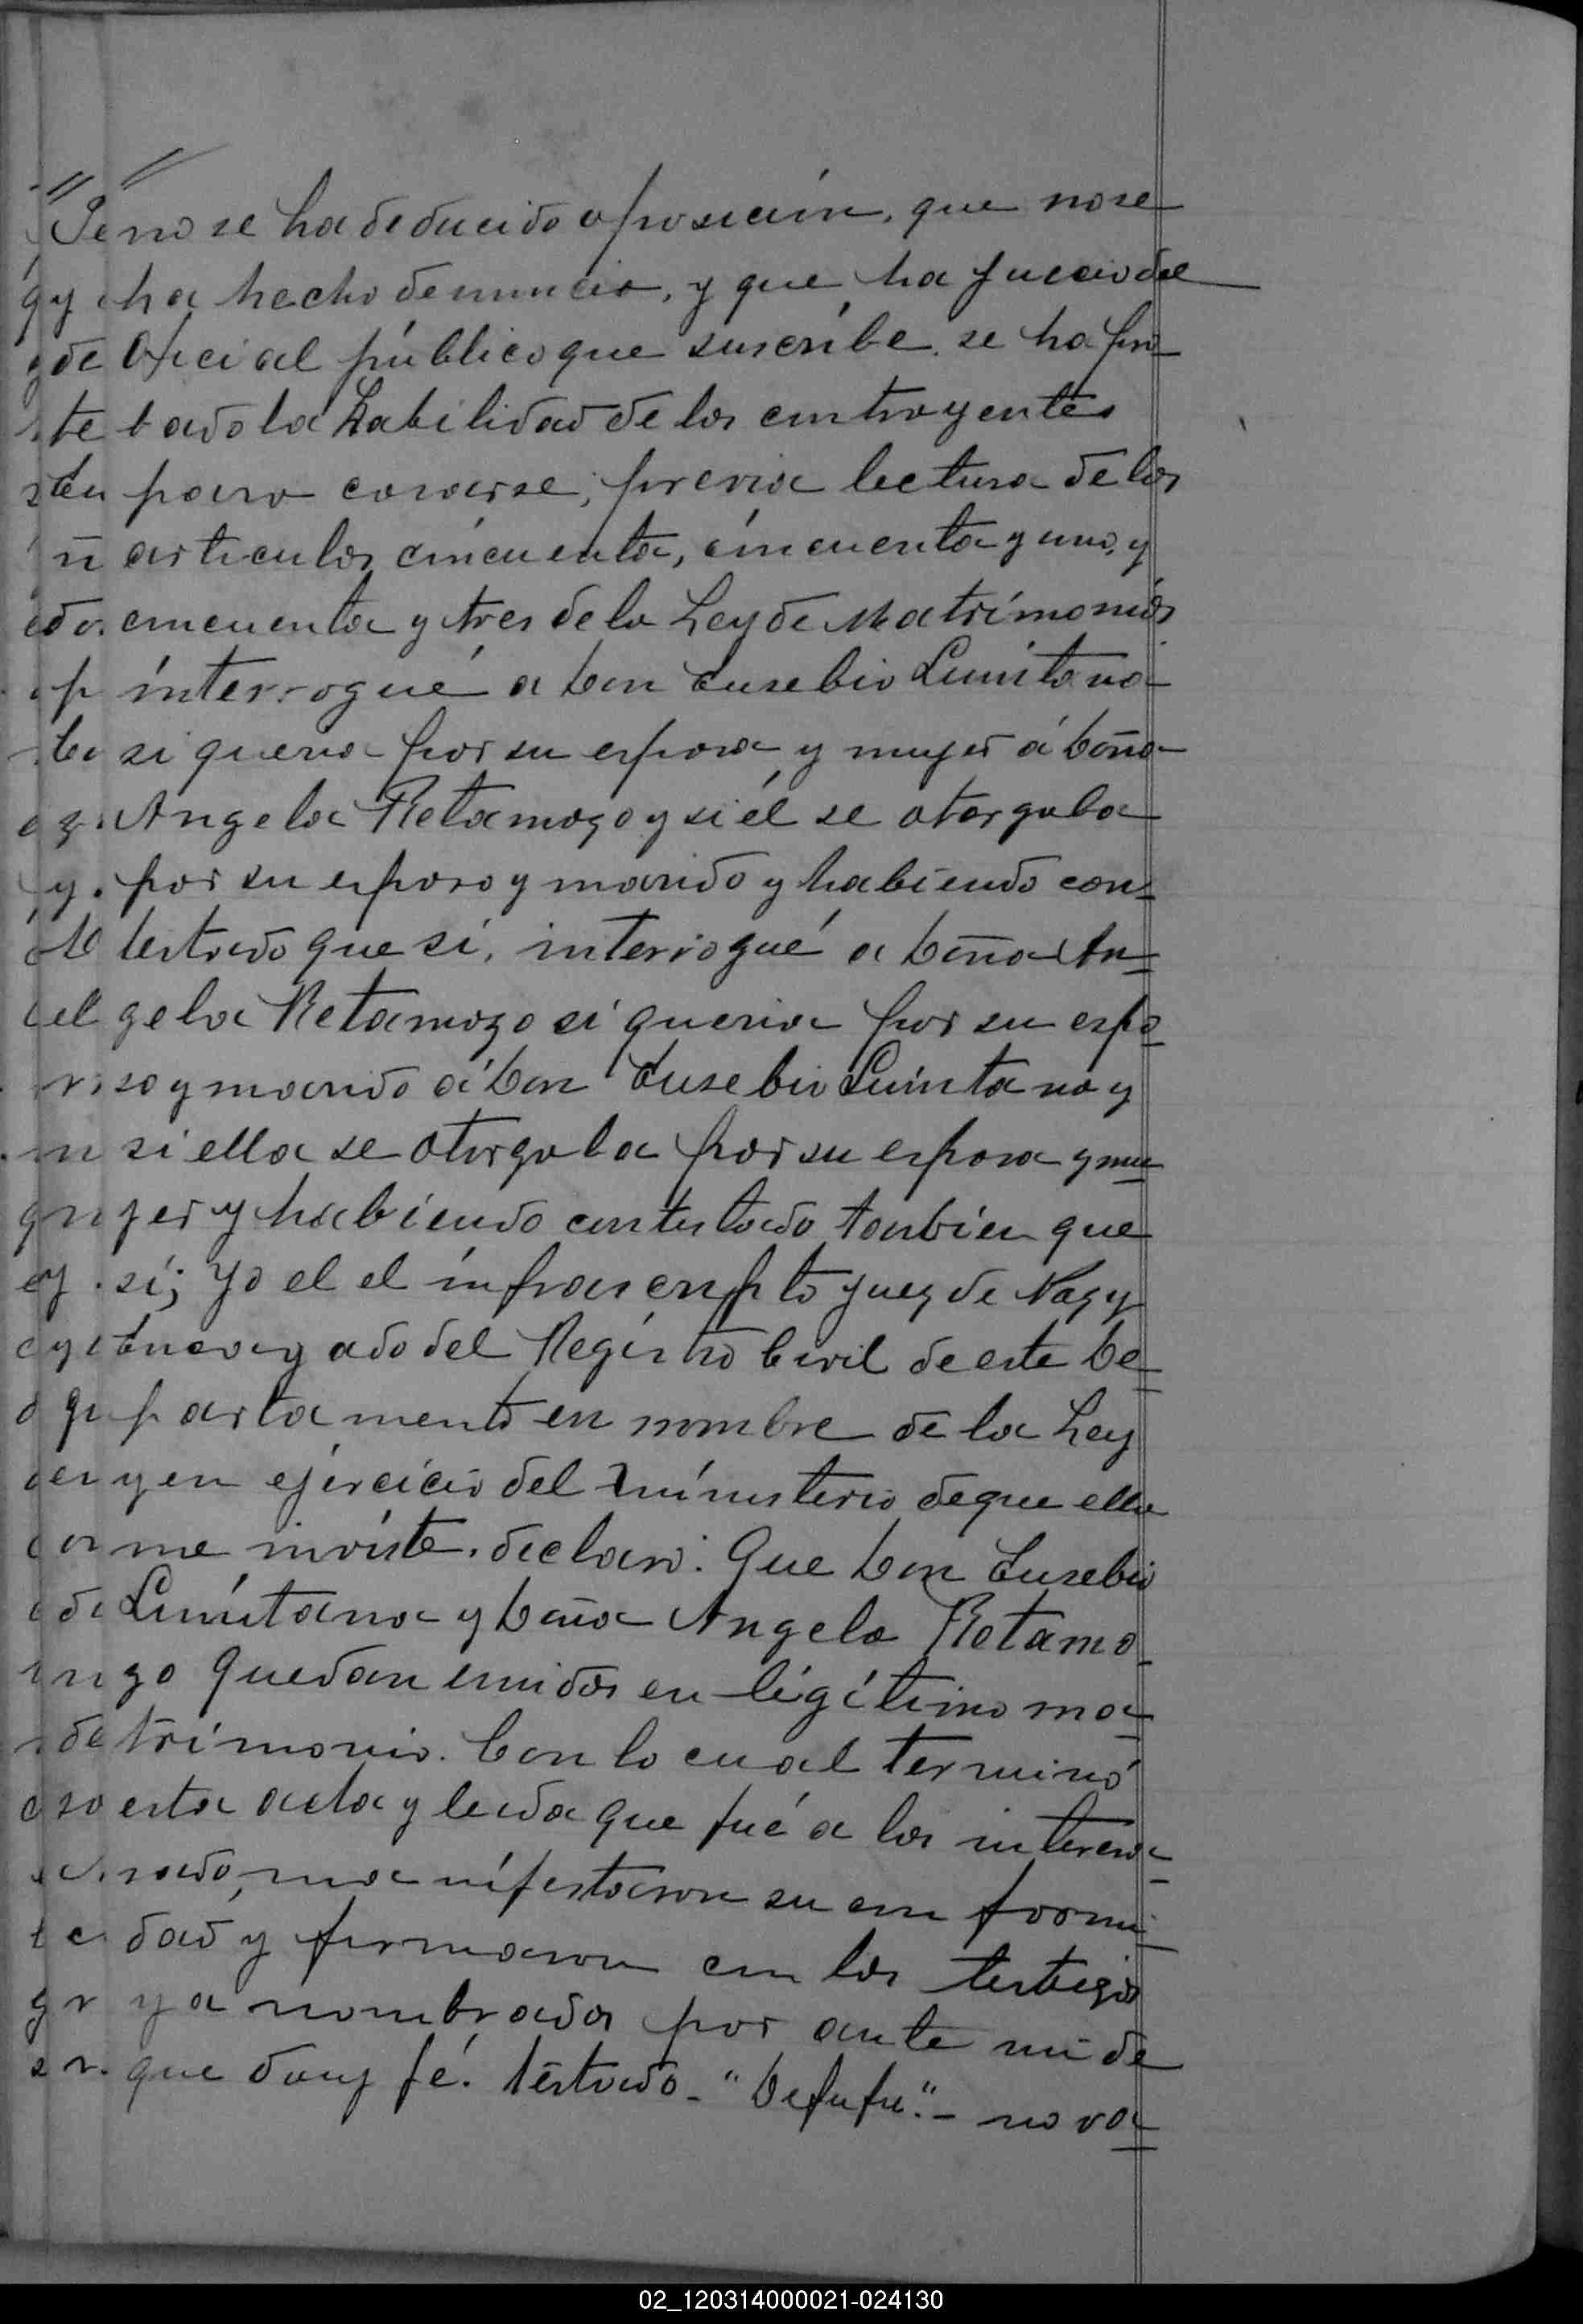 no se ha deducido oposición, que no se
ha hecho denuncia, y que ha juicio del
Oficial público que suscribe se ha pro-
bado la habilidad de los contrayentes
para casarse; previa lectura de los
articulos cincuenta, cincuenta y uno, y
cincuenta y tres de la Ley de Matrimonios
interrogué a Don Eusebio Quintana
si queria por su esposa y mujer á Doña
Angela Retamozo y si él se otorgaba
por su esposo y marido y habiendo con-
testado que si, interrogué a Doña An-
gela Retamozo si queria por su espo-
so y marido á Don Eusebio Quintana y
si ella se otorgaba por su esposa y mu-
jer y habiendo contestado tanbien que
sí; Yo el el infrascripto Juez de Paz y
Encargado del Registro Civil de este De-
partamento en nombre de la Ley
y en ejercicio del ministerio de que ella
me inviste, declaro: Que Don Eusebio
Quintana y Doña Angela Retamo-
zo quedan unidos en légitimo ma-
trimonio. Con lo cual terminó
esta acta y leida que fué a los interesa-
sados, manifestaron su con formi-
dad y firmaron con los testigos
ya nombrados por ante mi de
que doy fé. Testado - " " - no va-
02_120314000021-024130